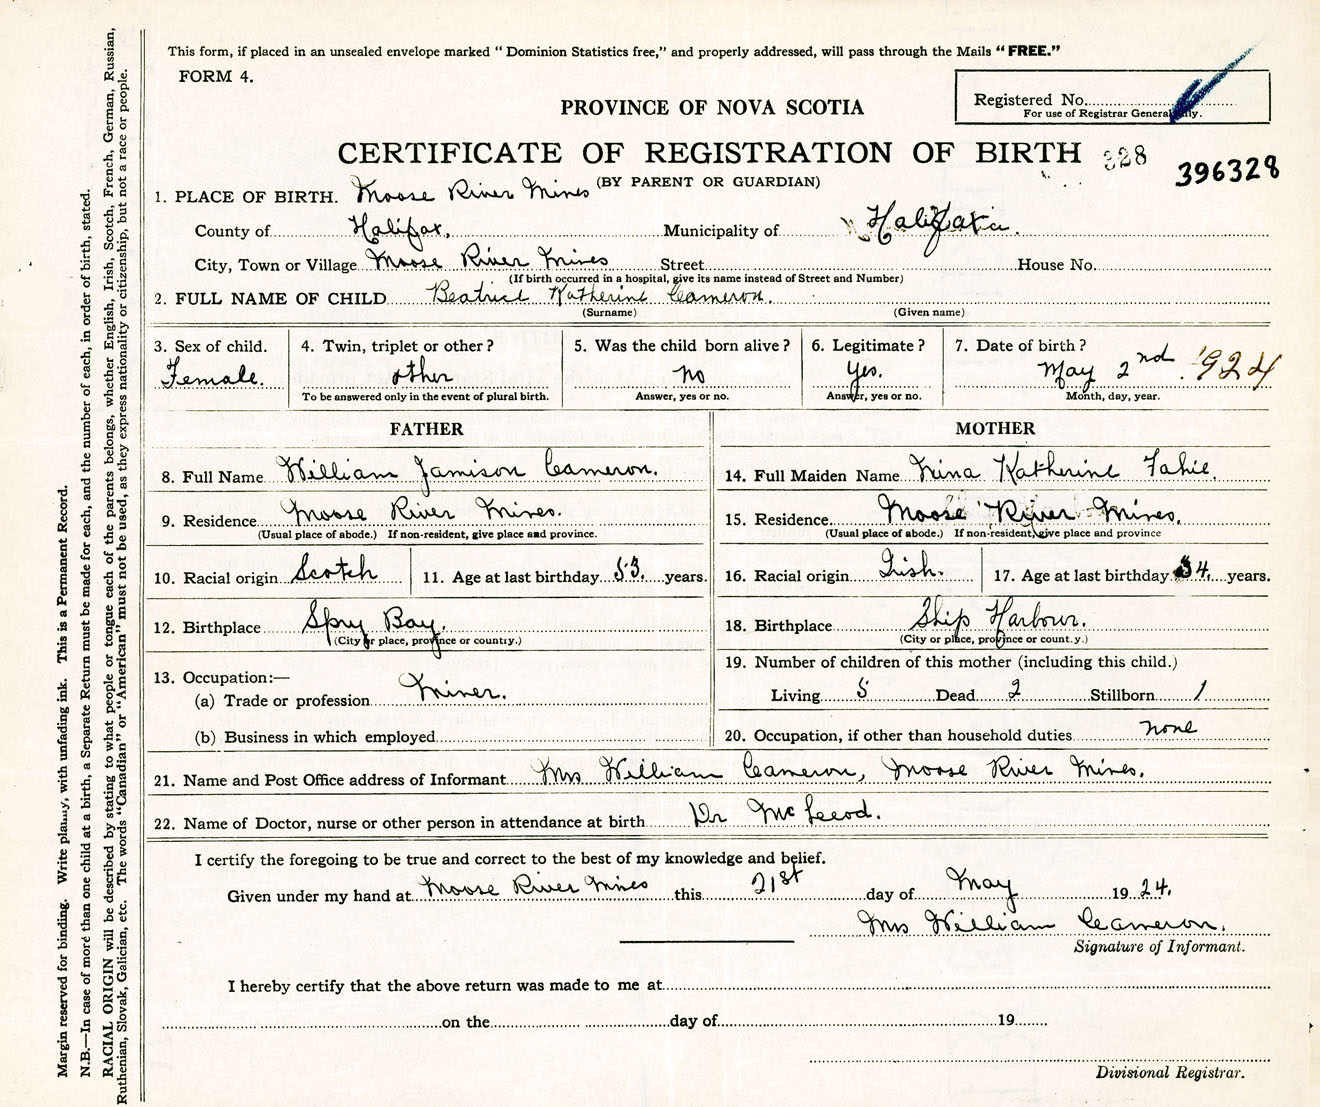 This form, if placed in an unsealed envelope marked "Dominion Statistics free," and properly addressed, will pass through the Mails "FREE."
FORM 4.
Registered No.
For use of Registrar General only.
PROVINCE OF NOVA SCOTIA
CERTIFICATE OF REGISTRATION OF BIRTH 328 396328
(BY PARENT OR GUARDIAN)
1. PLACE OF BIRTH. Moose River Mines
County of Halifax, Municipality of Halifax
City, Town or Village Moose River Mines Street House No.
(If birth occurred in a hospital, give its name instead of Street and Number)
2. FULL NAME OF CHILD Beatrice Katherine Cameron.
(Surname) (Given name)
3. Sex of child. 4. Twin, triplet or other? 5. Was the child born alive? 6. Legitimate? 7. Date of birth?
Female. other no Yes. May 2nd 1924
To be answered only in the event of plural birth. Answer, yes or no. Answer, yes or no. Month, day, year.
FATHER MOTHER
8. Full Name William Jamison Cameron. 14. Full Maiden Name Nina Katherine Fahie.
9. Residence Moose River Mines. 15. Residence Moose River Mines.
(Usual place of abode.) If non-resident, give place and province. (Usual place of abode.) If non-resident, give place and province
10. Racial origin Scotch 11. Age at last birthday 53. years. 16. Racial origin Irish. 17. Age at last birthday 34. years.
12. Birthplace Spry Bay. 18. Birthplace Ship Harbour.
(City or place, province or country.) (City or place, province or country.)
13. Occupation:— 19. Number of children of this mother (including this child.)
(a) Trade or profession Miner. Living 5 Dead 2 Stillborn 1
(b) Business in which employed 20. Occupation, if other than household duties none
21. Name and Post Office address of Informant Mrs William Cameron, Moose River Mines.
22. Name of Doctor, nurse or other person in attendance at birth Dr McLeod.
I certify the foregoing to be true and correct to the best of my knowledge and belief.
Given under my hand at Moose River Mines this 21st day of May 1924.
Mrs William Cameron.
Signature of Informant.
I hereby certify that the above return was made to me at
on the day of 19
Divisional Registrar.
Margin reserved for binding. Write plainly, with unfading ink. This is a Permanent Record.
N.B.—In case of more than one child at a birth, a Separate Return must be made for each, and the number of each, in order of birth, stated.
RACIAL ORIGIN will be described by stating to what people or tongue each of the parents belongs, whether English, Irish, Scotch, French, German, Russian,
Ruthenian, Slovak, Galician, etc. The words "Canadian" or "American" must not be used, as they express nationality or citizenship, but not a race or people.